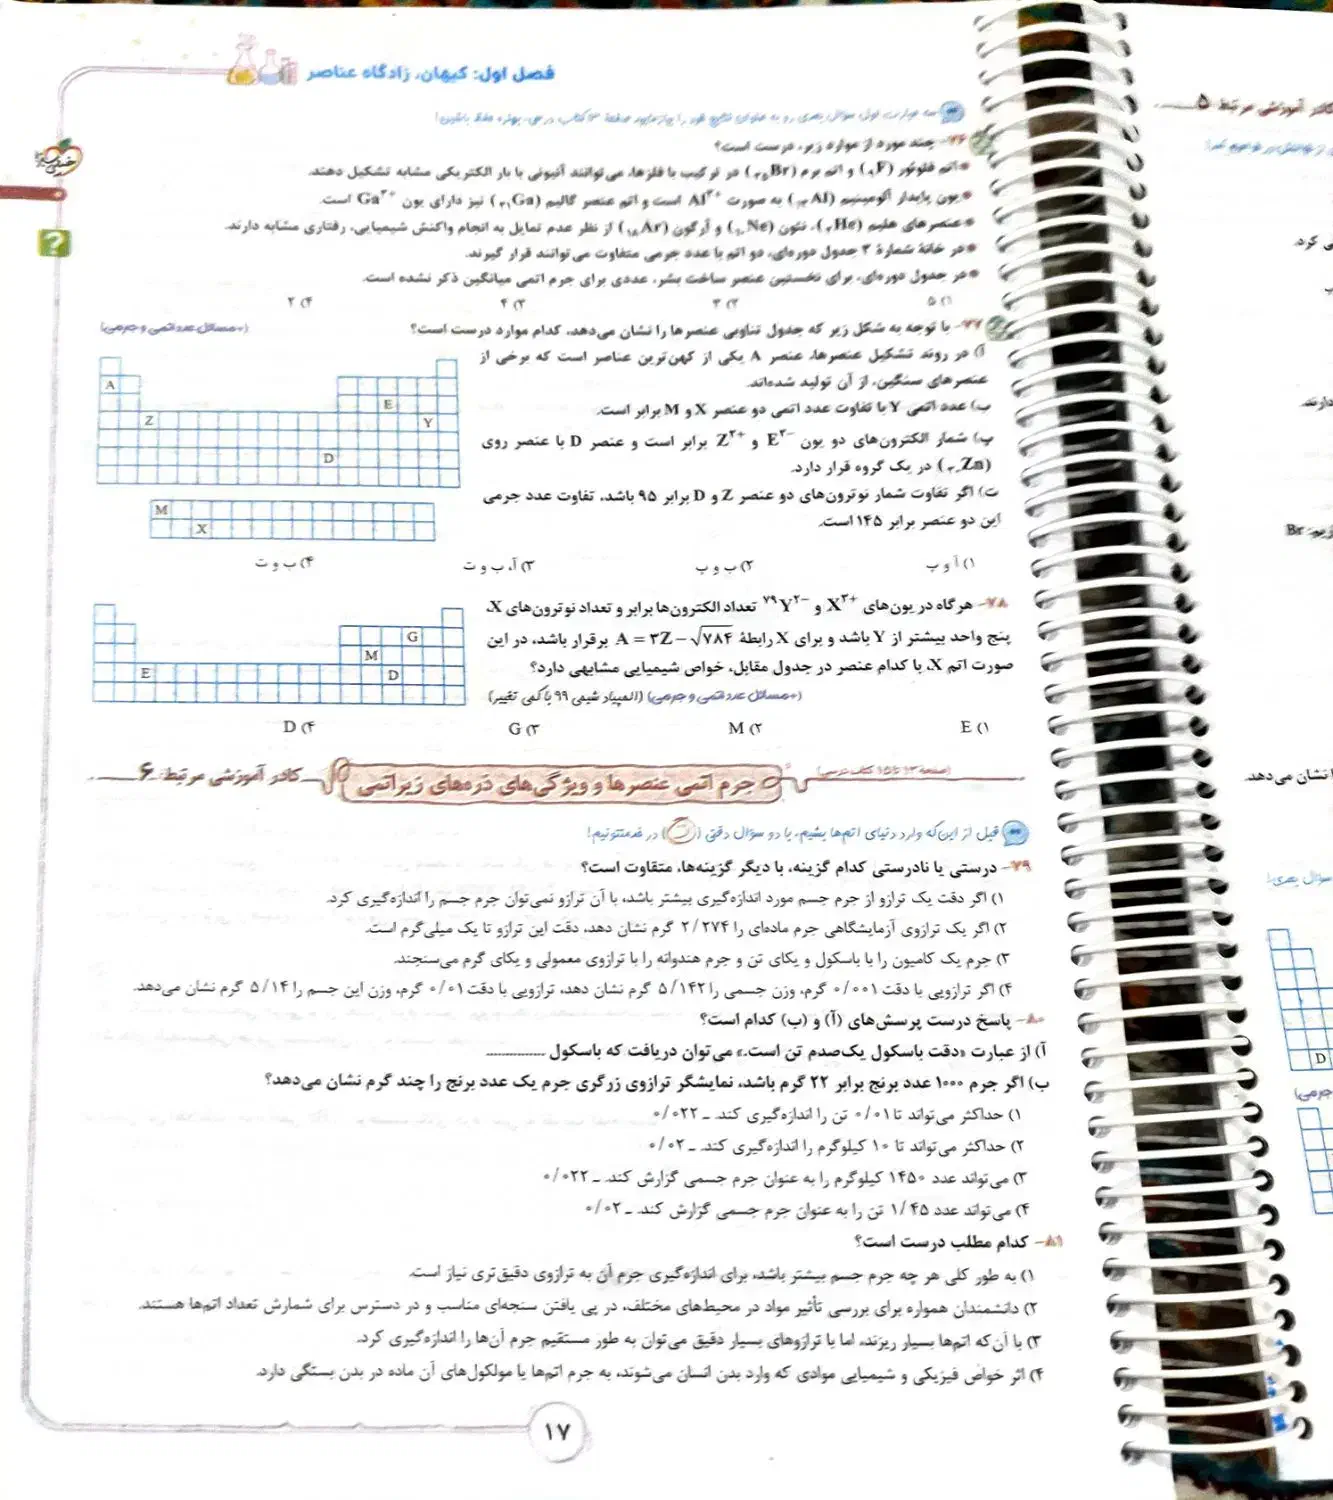 فصل اول: کیهان، زادگاه عناصر
۷۶- چند مورد از موارد زیر، درست است؟
• اتم فلوئور (₉F) و اتم برم (₃₅Br) در ترکیب با فلزها، می‌توانند آنیونی با بار الکتریکی مشابه تشکیل دهند.
• یون پایدار آلومینیم (₁₃Al) به صورت Al³⁺ است و اتم عنصر گالیم (₃₁Ga) نیز دارای یون Ga³⁺ است.
• عنصرهای هلیم (₂He)، نئون (₁₀Ne) و آرگون (₁₈Ar) از نظر عدم تمایل به انجام واکنش شیمیایی، رفتاری مشابه دارند.
• در خانهٔ شمارهٔ ۲ جدول دوره‌ای، دو اتم با عدد جرمی متفاوت می‌توانند قرار گیرند.
• در جدول دوره‌ای، برای نخستین عنصر ساخت بشر، عددی برای جرم اتمی میانگین ذکر نشده است.
۱) ۵ ۲) ۳ ۳) ۴ ۴) ۲
۷۷- با توجه به شکل زیر که جدول تناوبی عنصرها را نشان می‌دهد، کدام موارد درست است؟ (+مسائل عدد اتمی و جرمی)
آ) در روند تشکیل عنصرها، عنصر A یکی از کهن‌ترین عناصر است که برخی از
عنصرهای سنگین، از آن تولید شده‌اند.
ب) عدد اتمی Y با تفاوت عدد اتمی دو عنصر X و M برابر است.
پ) شمار الکترون‌های دو یون E³⁻ و Z³⁺ برابر است و عنصر D با عنصر روی
(₃₀Zn) در یک گروه قرار دارد.
ت) اگر تفاوت شمار نوترون‌های دو عنصر Z و D برابر ۹۵ باشد، تفاوت عدد جرمی
این دو عنصر برابر ۱۴۵ است.
A
E
Z
Y
D
M
X
۱) آ و پ ۲) ب و پ ۳) آ، ب و ت ۴) ب و ت
۷۸- هرگاه در یون‌های X³⁺ و ⁷⁹Y²⁻ تعداد الکترون‌ها برابر و تعداد نوترون‌های X،
پنج واحد بیشتر از Y باشد و برای X رابطهٔ A = ۳Z − √۷۸۴ برقرار باشد، در این
صورت اتم X، با کدام عنصر در جدول مقابل، خواص شیمیایی مشابهی دارد؟
(+مسائل عدد اتمی و جرمی) (المپیاد شیمی ۹۹ با کمی تغییر)
G
M
E
D
۱) E ۲) M ۳) G ۴) D
(صفحهٔ ۱۳ تا ۱۵ کتاب درسی) جرم اتمی عنصرها و ویژگی‌های ذره‌های زیراتمی کادر آموزشی مرتبط: ۶
قبل از این‌که وارد دنیای اتم‌ها بشیم، با دو سؤال دقتی در خدمتتونیم!
۷۹- درستی یا نادرستی کدام گزینه، با دیگر گزینه‌ها، متفاوت است؟
۱) اگر دقت یک ترازو از جرم جسم مورد اندازه‌گیری بیشتر باشد، با آن ترازو نمی‌توان جرم جسم را اندازه‌گیری کرد.
۲) اگر یک ترازوی آزمایشگاهی جرم ماده‌ای را ۲/۲۷۴ گرم نشان دهد، دقت این ترازو تا یک میلی‌گرم است.
۳) جرم یک کامیون را با باسکول و یکای تن و جرم هندوانه را با ترازوی معمولی و یکای گرم می‌سنجند.
۴) اگر ترازویی با دقت ۰/۰۰۱ گرم، وزن جسمی را ۵/۱۴۲ گرم نشان دهد، ترازویی با دقت ۰/۰۱ گرم، وزن این جسم را ۵/۱۴ گرم نشان می‌دهد.
۸۰- پاسخ درست پرسش‌های (آ) و (ب) کدام است؟
آ) از عبارت «دقت باسکول یک‌صدم تن است.» می‌توان دریافت که باسکول ............
ب) اگر جرم ۱۰۰۰ عدد برنج برابر ۲۲ گرم باشد، نمایشگر ترازوی زرگری جرم یک عدد برنج را چند گرم نشان می‌دهد؟
۱) حداکثر می‌تواند تا ۰/۰۱ تن را اندازه‌گیری کند. ـ ۰/۰۲۲
۲) حداکثر می‌تواند تا ۱۰ کیلوگرم را اندازه‌گیری کند. ـ ۰/۰۲
۳) می‌تواند عدد ۱۴۵۰ کیلوگرم را به عنوان جرم جسمی گزارش کند. ـ ۰/۰۲۲
۴) می‌تواند عدد ۱/۴۵ تن را به عنوان جرم جسمی گزارش کند. ـ ۰/۰۲
۸۱- کدام مطلب درست است؟
۱) به طور کلی هر چه جرم جسم بیشتر باشد، برای اندازه‌گیری جرم آن به ترازوی دقیق‌تری نیاز است.
۲) دانشمندان همواره برای بررسی تأثیر مواد در محیط‌های مختلف، در پی یافتن سنجه‌ای مناسب و در دسترس برای شمارش تعداد اتم‌ها هستند.
۳) با آن‌که اتم‌ها بسیار ریزند، اما با ترازوهای بسیار دقیق می‌توان به طور مستقیم جرم آن‌ها را اندازه‌گیری کرد.
۴) اثر خواص فیزیکی و شیمیایی موادی که وارد بدن انسان می‌شوند، به جرم اتم‌ها یا مولکول‌های آن ماده در بدن بستگی دارد.
۱۷
کادر آموزشی مرتبط: ۵
Br
نشان می‌دهد.
D